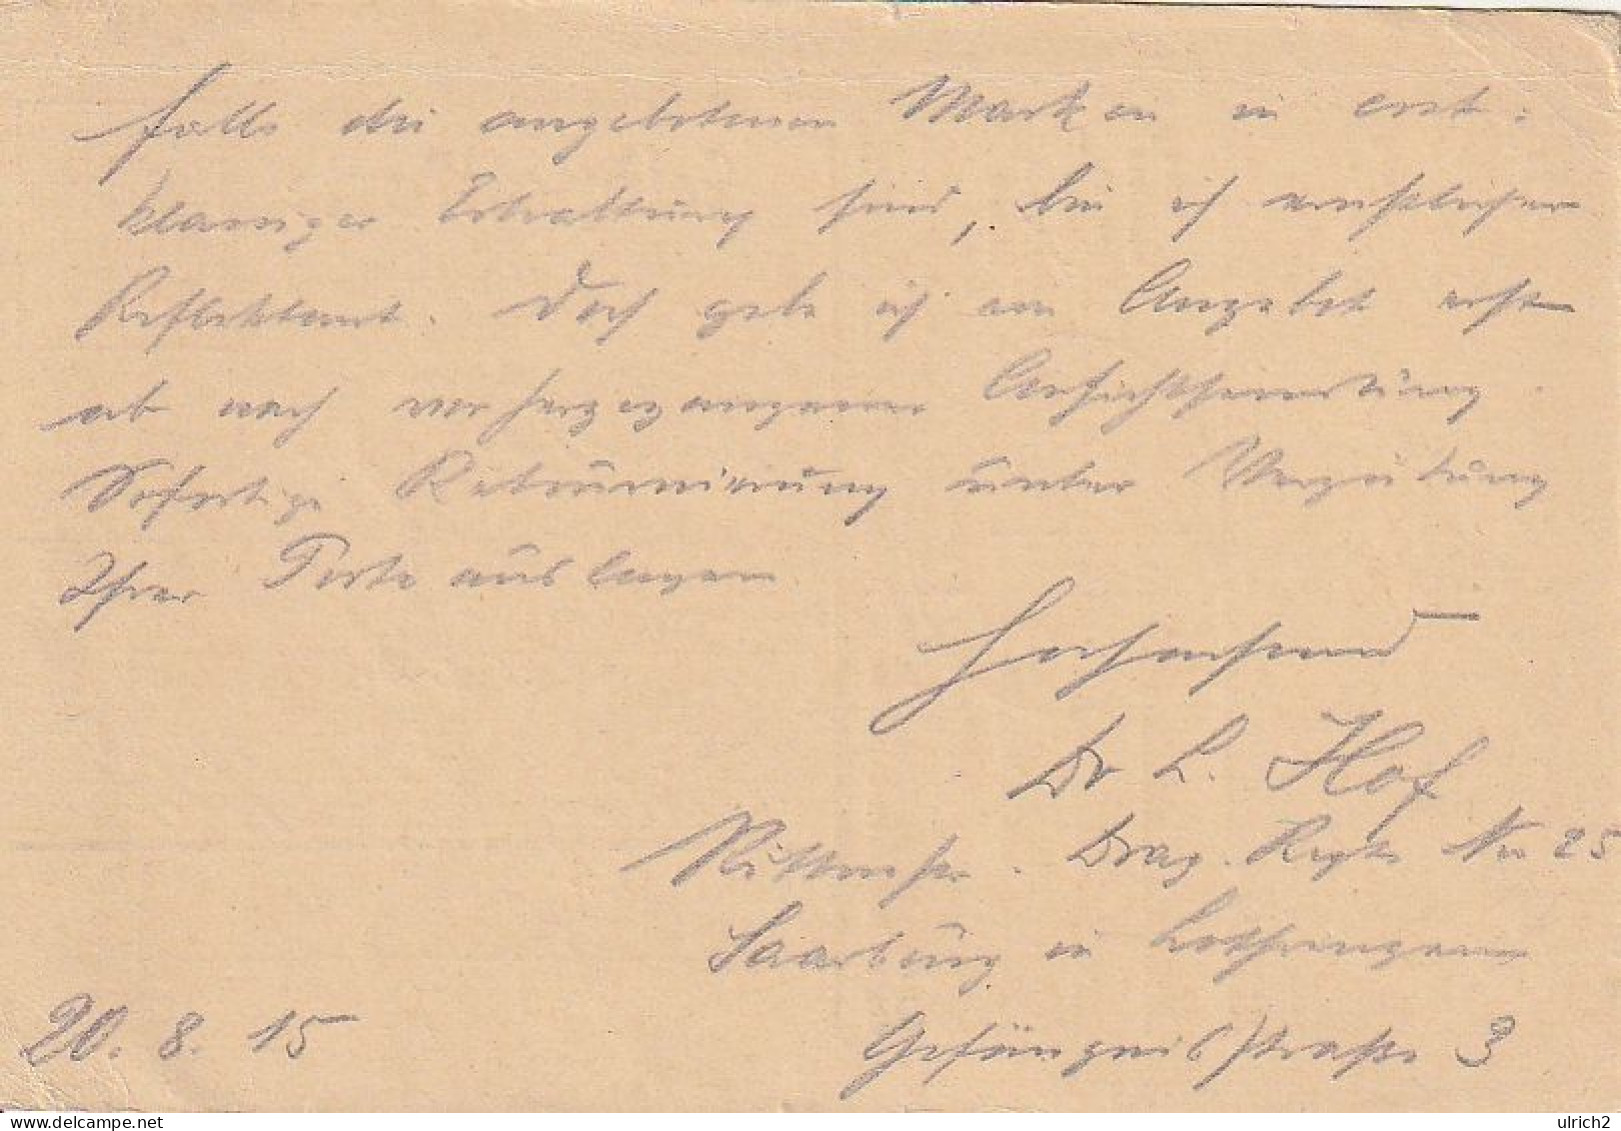 Falls die angebotenen Marken in erst-
klassiger Erhaltung sind, bin ich ernstlicher
Reflektant. Doch gebe ich ein Angebot erst
ab nach vorhergegangener Ansichtssendung.
Sofortige Retournierung unter Vergütung
Ihrer Portoauslagen.
Hochachtend
Dr L. Hof
Drag. Regts No 25
Saarburg in Lothringen
20. 8. 15 Gefängnisstraße 3
delcampe.net
ulrich2